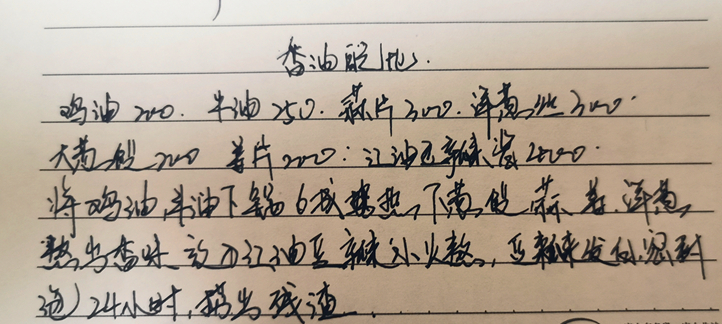 香油配地
鸡油200. 牛油250. 蒜片300. 洋葱丝300.
大葱段200 姜片200. 红油豆辣酱2500.
将鸡油,牛油下锅6成熬热,下葱段 蒜 姜,洋葱,
熬出香味 放入红油豆辣小火熬,豆辣发白,密封
泡24小时,捞出残渣.